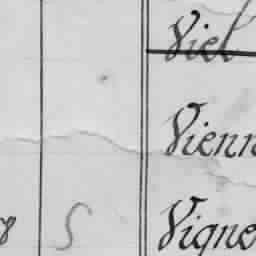 Viel
Vienn
8 S Vigne